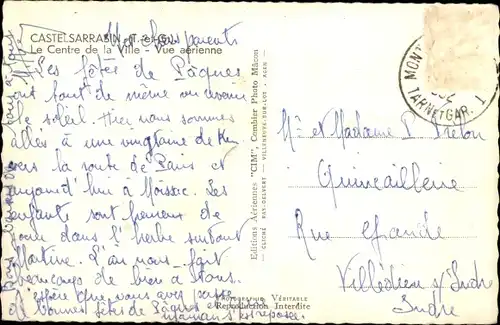 CASTELSARRASIN (T.-et-G.)
Le Centre de la Ville - Vue aérienne
Mes chers parents
Les fêtes de Pâques
ont tout de même vu
le soleil. Hier nous sommes
allés à une vingtaine de km
vers la route de Paris et
aujourd'hui à Moissac. Les
enfants sont heureux de
jouer dans l'herbe surtout
Martine. L'air nous fait
beaucoup de bien à tous.
J'espère que vous avez passé
de bonnes fêtes de Pâques et
maman s'est reposée.
Editions Aériennes "CIM", Combier Photo Mâcon
CLICHÉ RAY-DELVERT - VILLENEUVE-SUR-LOT - AGEN
PHOTOGRAPHIE VÉRITABLE
Reproduction Interdite
MONT
TARN ET GAR. 1
Mr et Madame P.
Quincaillerie
Rue Grande
Villedieu s/ Indre
Indre